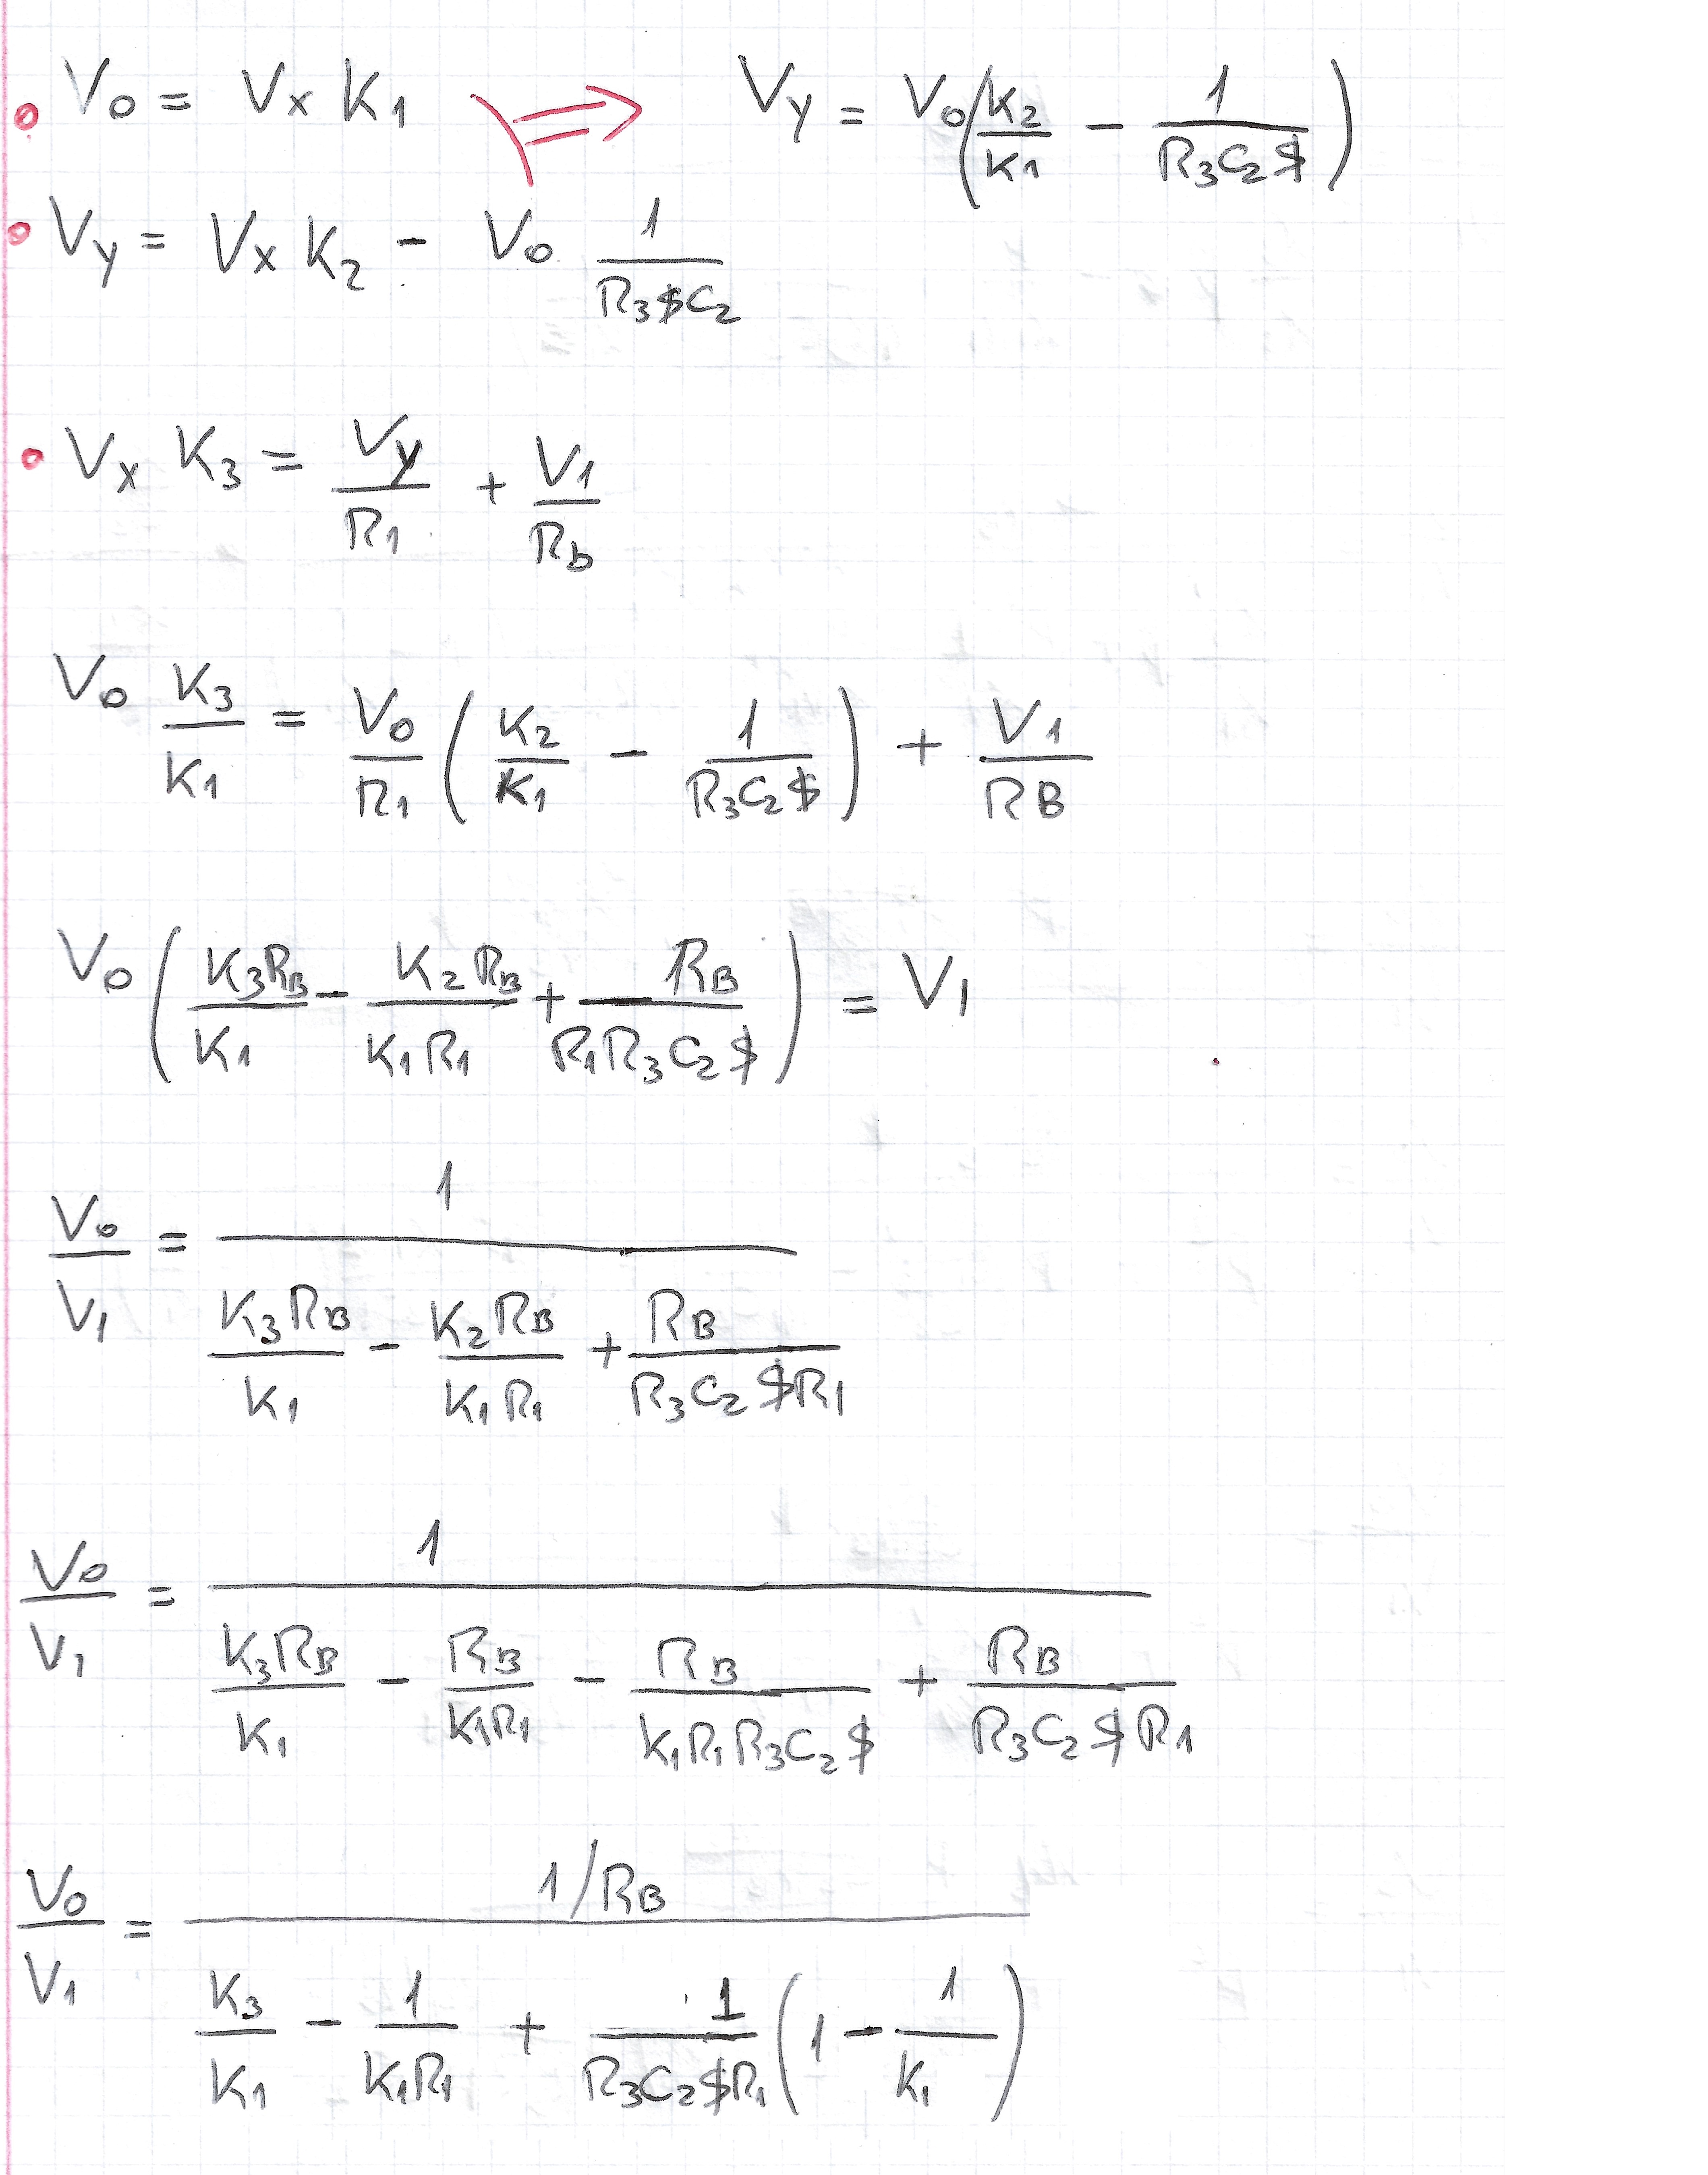 V0 = Vx K1 ⇒ Vy = V0 (K2/K1 - 1/(R3C2$))
Vy = Vx K2 - V0 1/(R3$C2)
Vx K3 = Vy/R1 + V1/Rb
V0 K3/K1 = V0/R1 (K2/K1 - 1/(R3C2$)) + V1/RB
V0 (K3RB/K1 - K2RB/(K1R1) + RB/(R1R3C2$)) = V1
V0/V1 = 1/(K3RB/K1 - K2RB/(K1R1) + RB/(R3C2$R1))
V0/V1 = 1/(K3RB/K1 - RB/(K1R1) - RB/(K1R1R3C2$) + RB/(R3C2$R1))
V0/V1 = (1/RB)/(K3/K1 - 1/(K1R1) + 1/(R3C2$R1) (1 - 1/K1))